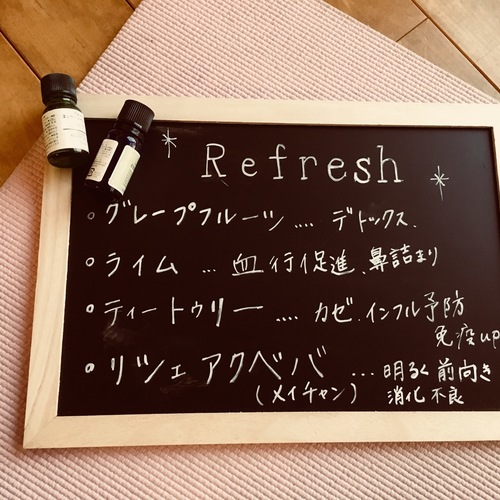 Refresh
グレープフルーツ .... デトックス.
ライム ... 血行促進、鼻詰まり
ティートゥリー .... カゼ.インフル予防
免疫up
リツェアクベバ ... 明るく前向き
(メイチャン) 消化不良